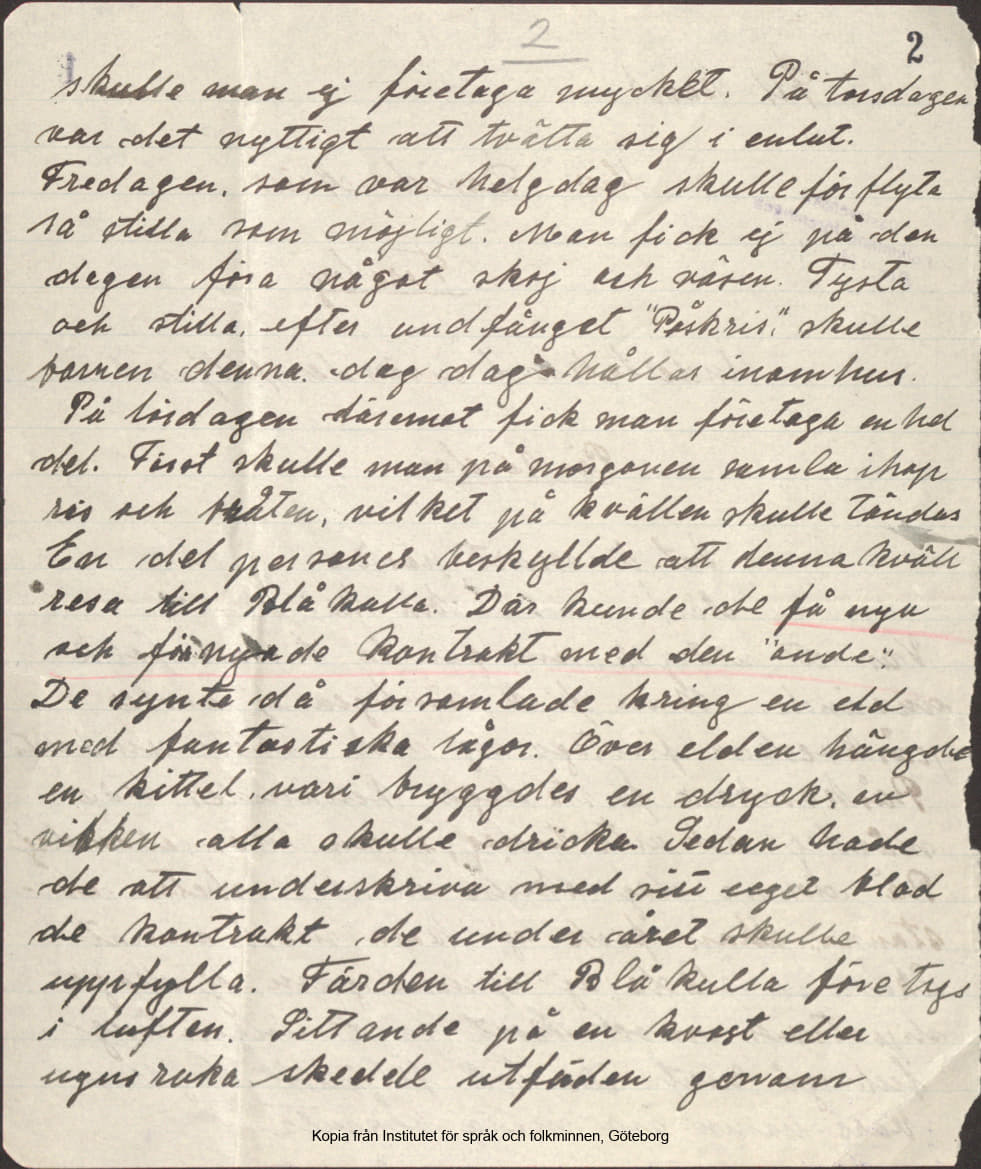 2
2
skulle man ej företaga mycket. På torsdagen
var det nyttigt att tvätta sig i enlut.
Fredagen, som var helgdag skulle förflyta
så stilla som möjligt. Man fick ej på den
dagen föra något skoj och väsen. Tysta
och stilla, efter undfånget "Påskris", skulle
barnen denna dag dag hållas inomhus.
På lördagen däremot fick man företaga en hel
del. Först skulle man på morgonen samla ihop
ris och bråten, vilket på kvällen skulle tändas
En del personer beskyllde att denna kväll
resa till Blåkulla. Där kunde de få nya
och förnyade kontrakt med den "onde".
De syntes då församlade kring en eld
med fantastiska lågor. Över elden hängde
en kittel, vari bryggdes en dryck, av
vilken alla skulle dricka. Sedan hade
de att underskriva med sitt eget blod
de kontrakt de under året skulle
uppfylla. Färden till Blåkulla företogs
i luften. Sittande på en kvast eller
ugnsraka skedde utfärden genom
Kopia från Institutet för språk och folkminnen, Göteborg